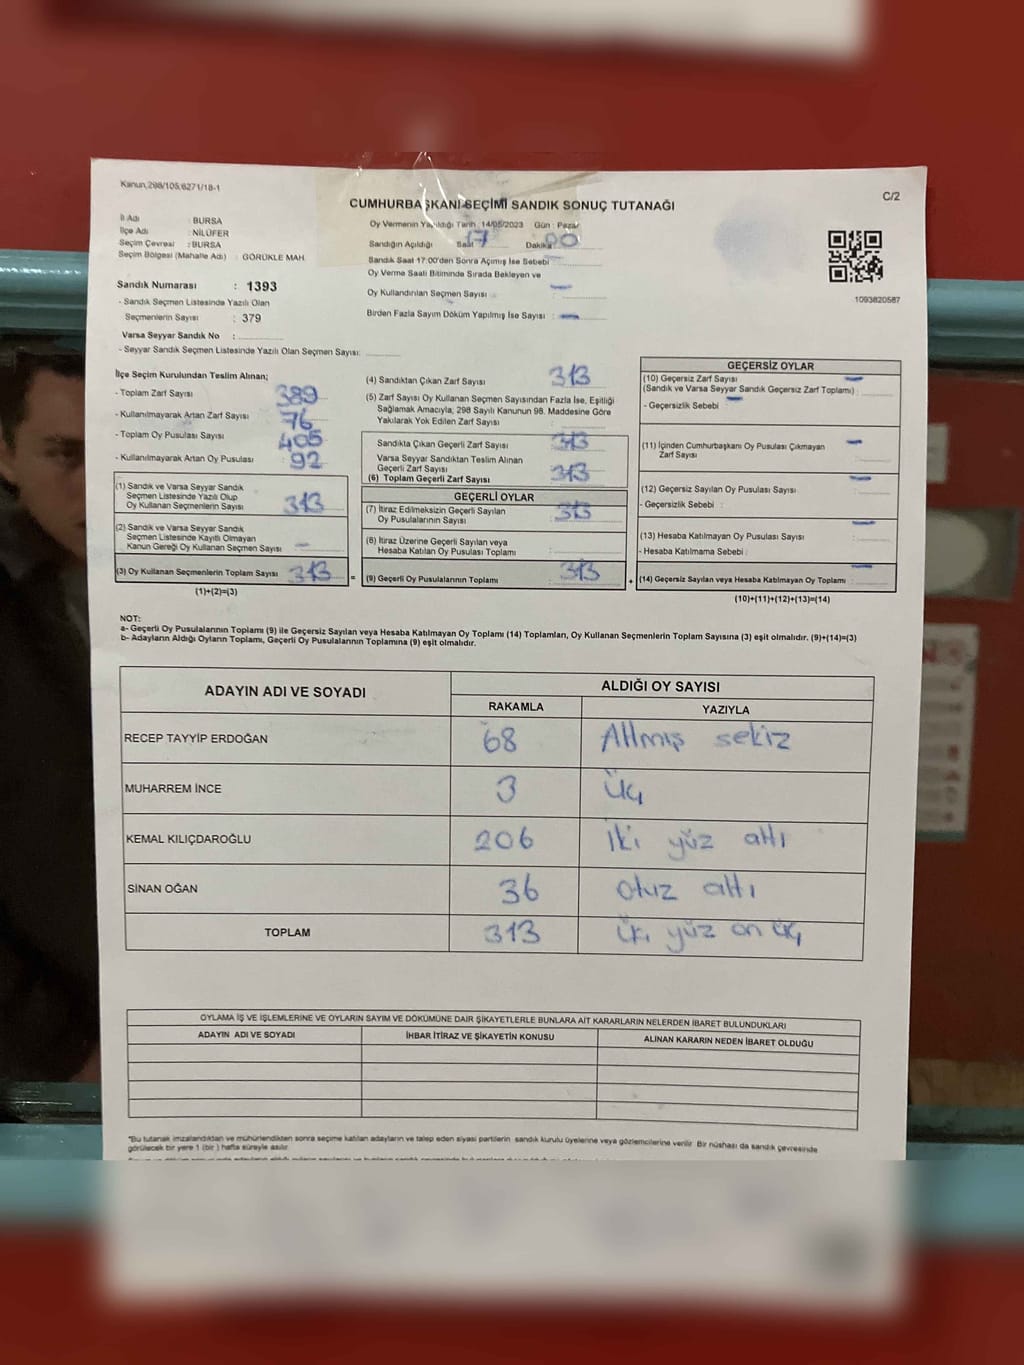 Kanun,298/105,6271/18-1
C/2
CUMHURBAŞKANI SEÇİMİ SANDIK SONUÇ TUTANAĞI
İl Adı : BURSA
İlçe Adı : NİLÜFER
Seçim Çevresi : BURSA
Seçim Bölgesi (Mahalle Adı) : GÖRÜKLE MAH.
Sandık Numarası : 1393
- Sandık Seçmen Listesinde Yazılı Olan
Seçmenlerin Sayısı : 379
Varsa Seyyar Sandık No :
- Seyyar Sandık Seçmen Listesinde Yazılı Olan Seçmen Sayısı:
Oy Vermenin Yapıldığı Tarih :14/05/2023 Gün : Pazar
Sandığın Açıldığı Saat 17 Dakika 00
Sandık Saat 17:00'den Sonra Açımış İse Sebebi
Oy Verme Saati Bitiminde Sırada Bekleyen ve
Oy Kullandırılan Seçmen Sayısı : —
Birden Fazla Sayım Döküm Yapılmış İse Sayısı : —
1093820587
İlçe Seçim Kurulundan Teslim Alınan;
- Toplam Zarf Sayısı : 389
- Kullanılmayarak Artan Zarf Sayısı : 76
- Toplam Oy Pusulası Sayısı : 405
- Kullanılmayarak Artan Oy Pusulası : 92
(1) Sandık ve Varsa Seyyar Sandık
Seçmen Listesinde Yazılı Olup
Oy Kullanan Seçmenlerin Sayısı : 313
(2) Sandık ve Varsa Seyyar Sandık
Seçmen Listesinde Kayıtlı Olmayan
Kanun Gereği Oy Kullanan Seçmen Sayısı : —
(3) Oy Kullanan Seçmenlerin Toplam Sayısı : 313 =
(1)+(2)=(3)
(4) Sandıktan Çıkan Zarf Sayısı : 313
(5) Zarf Sayısı Oy Kullanan Seçmen Sayısından Fazla İse, Eşitliği
Sağlamak Amacıyla; 298 Sayılı Kanunun 98. Maddesine Göre
Yakılarak Yok Edilen Zarf Sayısı :
Sandıkta Çıkan Geçerli Zarf Sayısı : 313
Varsa Seyyar Sandıktan Teslim Alınan
Geçerli Zarf Sayısı
(6) Toplam Geçerli Zarf Sayısı : 313
GEÇERLİ OYLAR
(7) İtiraz Edilmeksizin Geçerli Sayılan
Oy Pusulalarının Sayısı : 313
(8) İtiraz Üzerine Geçerli Sayılan veya
Hesaba Katılan Oy Pusulası Toplamı :
(9) Geçerli Oy Pusulalarının Toplamı : 313 +
GEÇERSİZ OYLAR
(10) Geçersiz Zarf Sayısı : —
(Sandık ve Varsa Seyyar Sandık Geçersiz Zarf Toplamı)
- Geçersizlik Sebebi : —
(11) İçinden Cumhurbaşkanı Oy Pusulası Çıkmayan : —
Zarf Sayısı
(12) Geçersiz Sayılan Oy Pusulası Sayısı : —
- Geçersizlik Sebebi :
(13) Hesaba Katılmayan Oy Pusulası Sayısı : —
- Hesaba Katılmama Sebebi :
(14) Geçersiz Sayılan veya Hesaba Katılmayan Oy Toplamı : —
(10)+(11)+(12)+(13)=(14)
NOT:
a- Geçerli Oy Pusulalarının Toplamı (9) ile Geçersiz Sayılan veya Hesaba Katılmayan Oy Toplamı (14) Toplamları, Oy Kullanan Seçmenlerin Toplam Sayısına (3) eşit olmalıdır. (9)+(14)=(3)
b- Adayların Aldığı Oyların Toplamı, Geçerli Oy Pusulalarının Toplamına (9) eşit olmalıdır.
ADAYIN ADI VE SOYADI
ALDIĞI OY SAYISI
RAKAMLA YAZIYLA
RECEP TAYYİP ERDOĞAN 68 Altmış sekiz
MUHARREM İNCE 3 Üç
KEMAL KILIÇDAROĞLU 206 İki yüz altı
SİNAN OĞAN 36 otuz altı
TOPLAM 313 Üki yüz on üç
OYLAMA İŞ VE İŞLEMLERİNE VE OYLARIN SAYIM VE DÖKÜMÜNE DAİR ŞİKAYETLERLE BUNLARA AİT KARARLARIN NELERDEN İBARET BULUNDUKLARI
ADAYIN ADI VE SOYADI İHBAR İTİRAZ VE ŞİKAYETİN KONUSU ALINAN KARARIN NEDEN İBARET OLDUĞU
*Bu tutanak imzalandıktan ve mühürlendikten sonra seçime katılan adayların ve talep eden siyasi partilerin sandık kurulu üyelerine veya gözlemcilerine verilir. Bir nüshası da sandık çevresinde
görülecek bir yere 1 (bir ) hafta süreyle asılır.